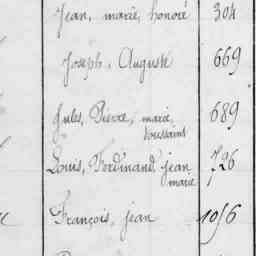 Jean, marie, honoré 304
Joseph, Auguste 669
Jules, Pierre, marie, 689
toussaint
Louis, Ferdinand jean 726
marie
François, jean 1056